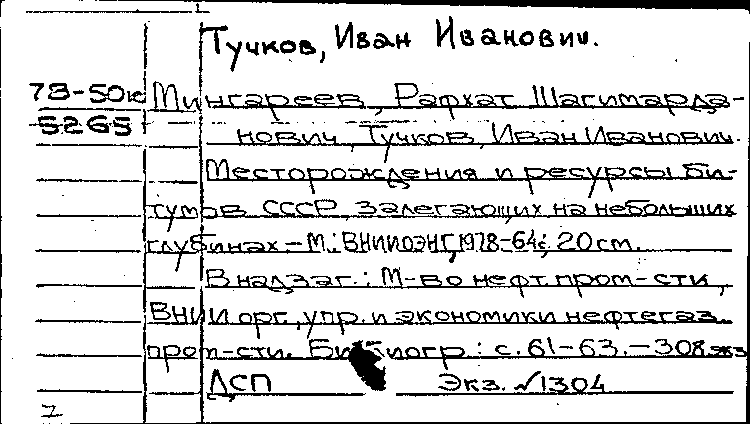 Тучков, Иван Иванович.
78-50к Мингареев, Рафхат Шагимарда-
5265 нович, Тучков, Иван Иванович.
Месторождения и ресурсы би-
тумов СССР, залегающих на небольших
глубинах.-М.: ВНИИОЭНГ, 1978-64с; 20 см.
В надзаг.: М-во нефт. пром-сти,
ВНИИ орг., упр. и экономики нефтегаз.
пром-сти. Библиогр.: с. 61-63.-308 экз
ДСП Экз. √1304